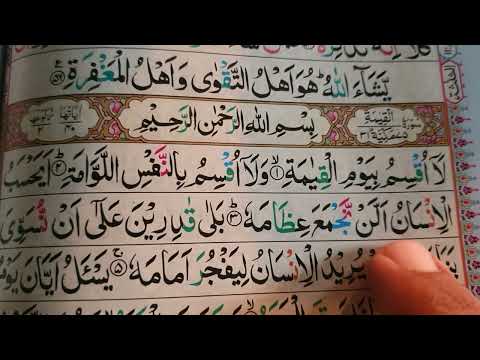 یَشَآءَ اللّٰهُ ؕ هُوَ اَهْلُ التَّقْوٰى وَ اَهْلُ الْمَغْفِرَةِ
بِسْمِ اللّٰهِ الرَّحْمٰنِ الرَّحِیْمِ
لَاۤ اُقْسِمُ بِیَوْمِ الْقِیٰمَةِ ۙ۱ وَ لَاۤ اُقْسِمُ بِالنَّفْسِ اللَّوَّامَةِ ؕ۲ اَیَحْسَبُ
الْاِنْسَانُ اَلَّنْ نَّجْمَعَ عِظَامَهٗ ؕ۳ بَلٰى قٰدِرِیْنَ عَلٰۤى اَنْ نُّسَوِّیَ
یُرِیْدُ الْاِنْسَانُ لِیَفْجُرَ اَمَامَهٗ ۚ۵ یَسْـَٔلُ اَیَّانَ یَوْمُ